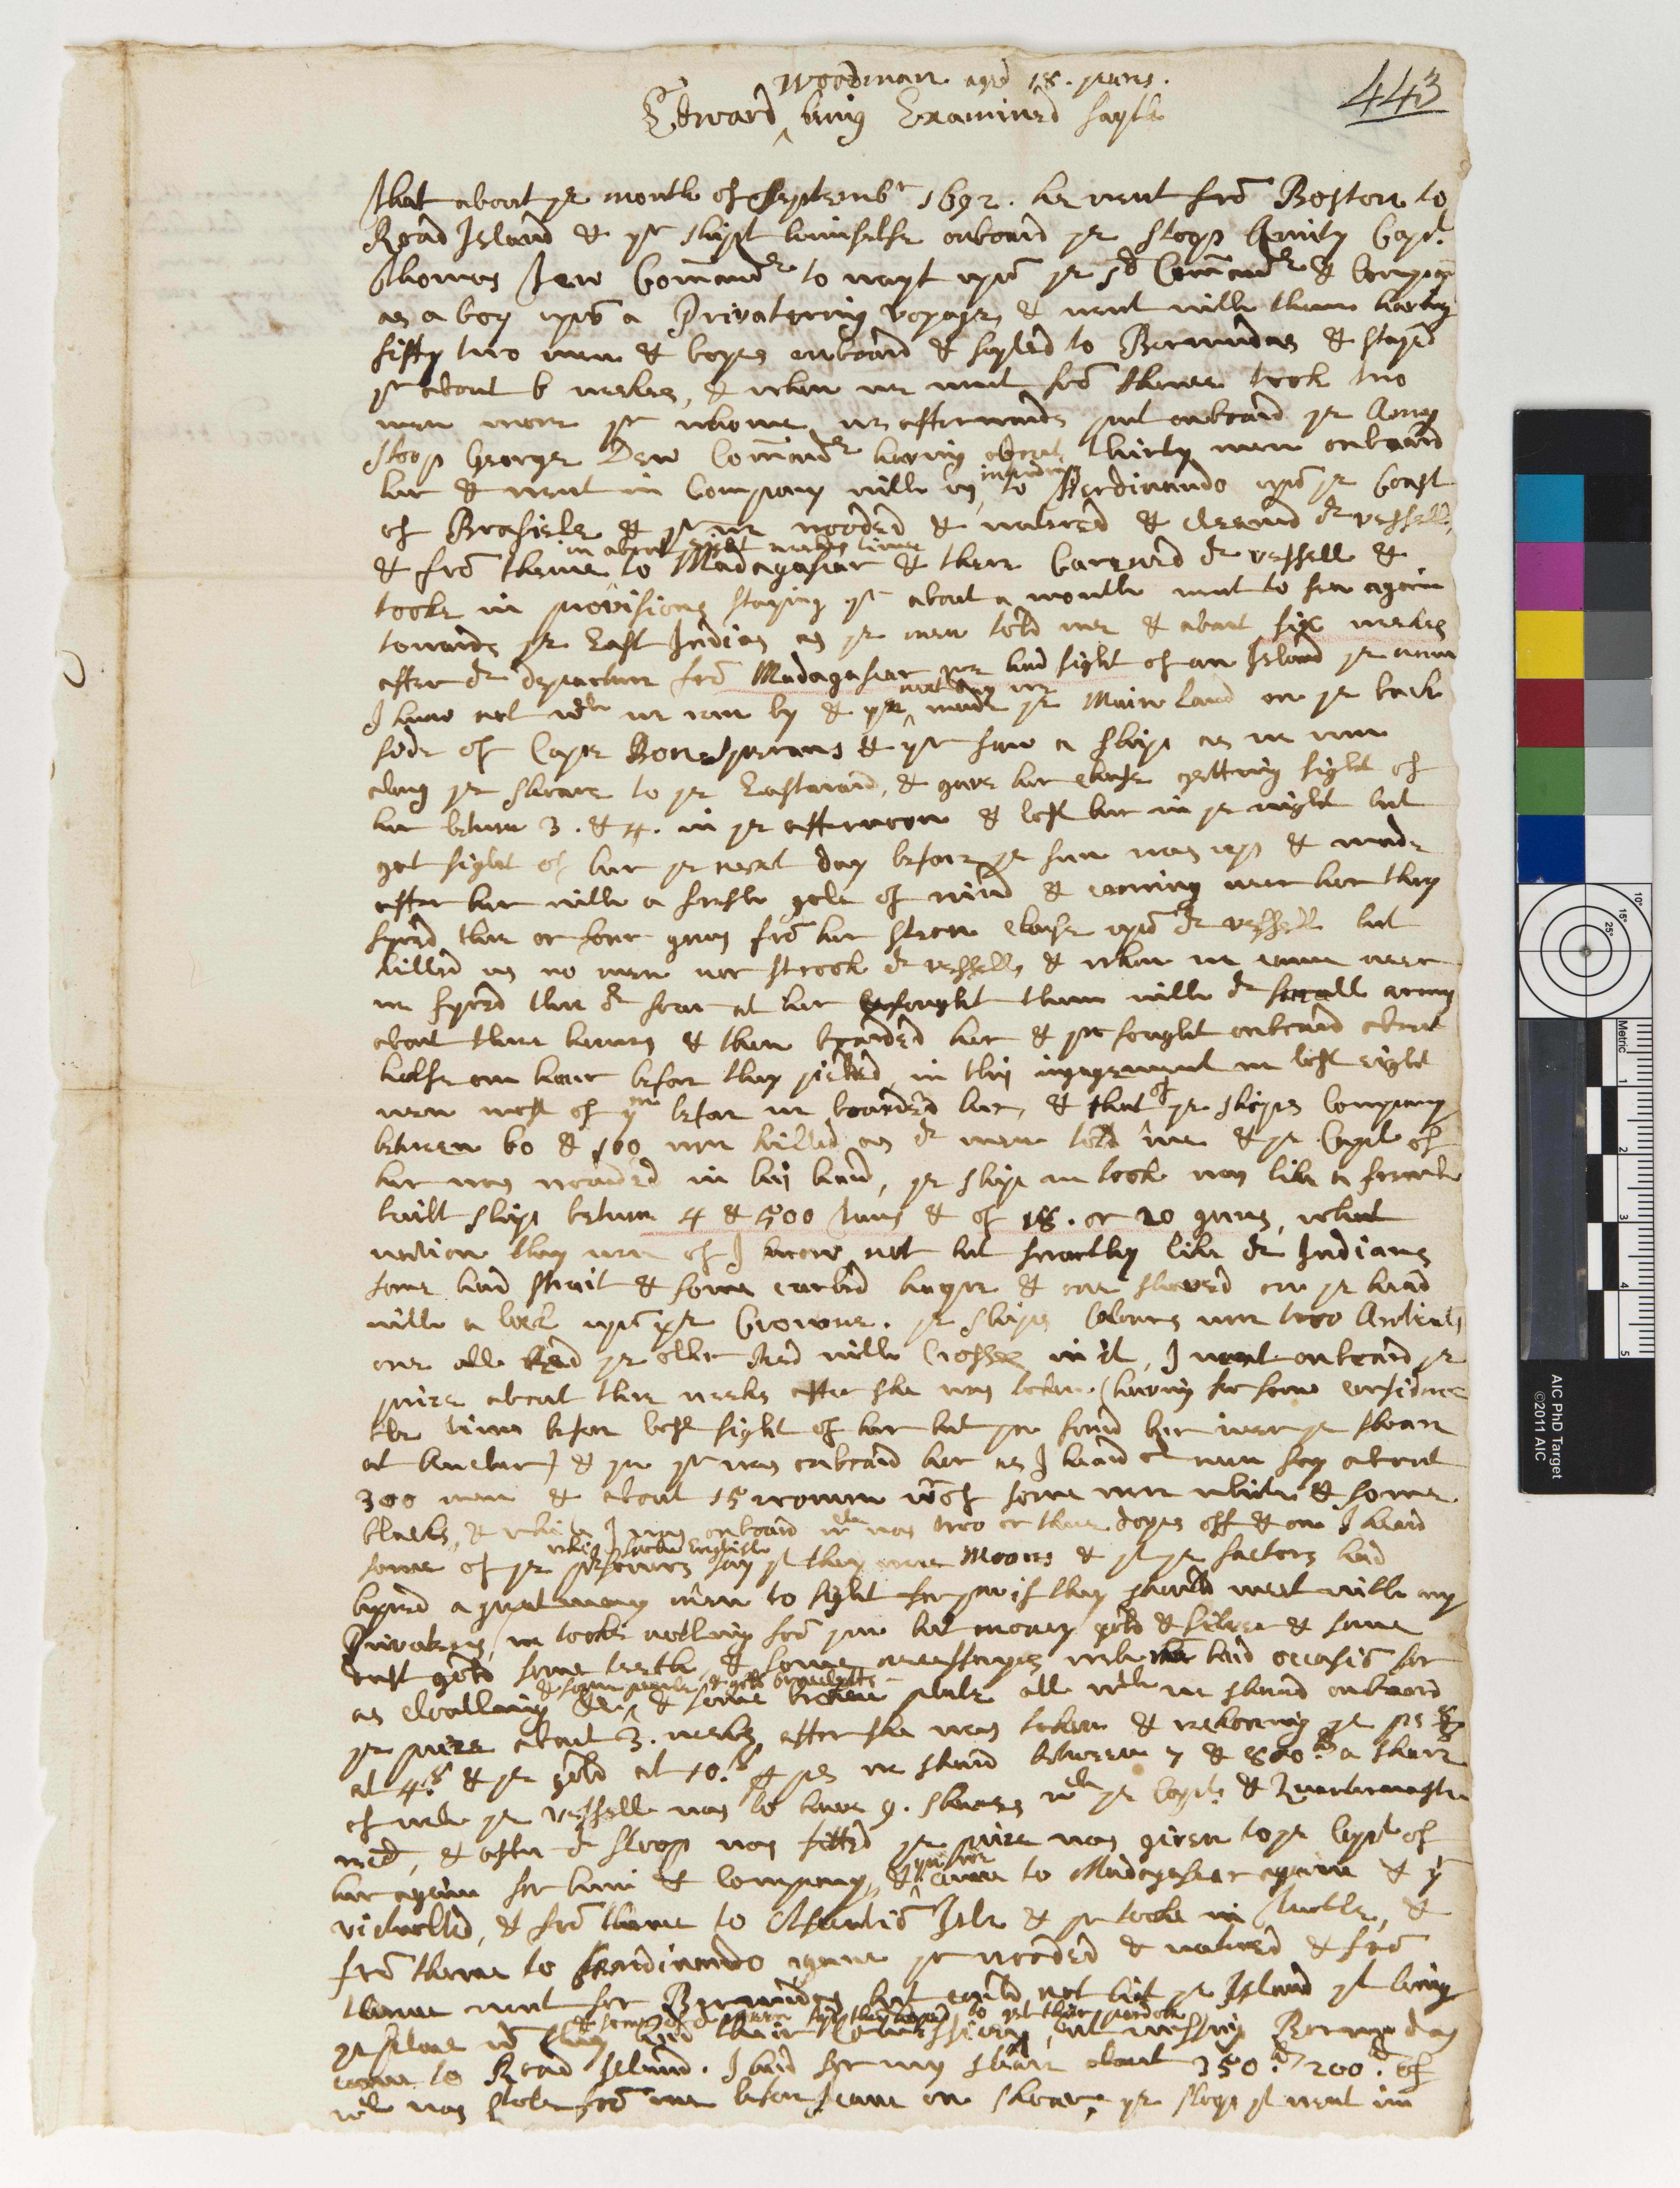 443
Woodman aged 18. yeares.
Edward ‸ being Examined sayth
That about ye month of Septembr 1692. he went frõ Boston to
Road Island & yr shipt himselfe onboard ye sloop Amity Capt.
Thomas Tew Com̃andr to wayt upõ ye sd Com̃andr & Company
as a boy upõ a Privatering voyage, & went with them having
fifty two men & boyes onboard & sayled to Bermudas & stayed
yr about 6 weekes, & when we went frõ thence took two
men more yr whome we afterwards put onboard ye Amy
sloop George Dew Com̃andr having about thirty men onboard
her & went in Company with us intending to Ferdinando upõ ye Coast
of Brasiele & yr we wooded & watered & cleaned or vessell,
in about eight weekes time
& frõ thence to Madagascar & there Careened or vessell &
tooke in provisions staying yr about a month went to sea again
towards ye East Indias as ye men told me & about six weekes
after or departure frõ Madagascar we had sight of an Island ye name
I know not wch we ran by & ye next day we made ye Main land on ye back
side of Cape Bonesperans & yr saw a ship as we run
along ye shoare to ye Eastward, & gave her chase getting sight of
her betwn 3. & 4. in ye afternoon & lost her in ye night but
got sight of her ye next day before ye sun was up & made
after her with a fresh gale of wind & coming neer her they
fyerd three or four guns frõ her stern chase upõ or vessell but
killed us no men nor strook or vessell, & when we came neer
we fyerd three or four at her & fought them with or small armes
about three houres & then boarded her & yn fought onboard about
halfe an hour before they yielded, in this ingagement we lost eight
men most of ym before we boarded her, & that of ye ships Company
between 60 & 100 were killed as or men told me & ye Capt of
her was wounded in his hand, ye ship we took was like a french
built ship betwn 4 & 500 tuns & of 18. or 20 guns, what
nation they were of I know not but swarthy like or Indians
some had strait & some curled hayre & one shaved on ye head
with a lock upõ ye Crowne. ye ships Colours were two Antients
one all Red ye other Red with Crosses in it, I went onboard ye
prize about three weekes after she was taken (having for some considera
ble time before lost sight of her but yn found her neer ye shoare
at Anchor) & yn yr was onboard her as I heard or men say about
300 men & about 15 women wrof some were white & some
blacks, & while I was onboard wch was two or three dayes off & on I heard
which spake English
some of ye prisoners say yt they were Moores & yt ye factors had
hyred a great many men to fight for ym if they should meet with any
Privateers, we tooke nothing frõ ym but money gold & silver & some
dust gold some teeth & some necessaryes wch we had occasiõ for
& some pearle & gold bracelets
as cloathing &c, & some broken plate all wch we shared onboard
ye prize about 3. weeks after she was taken & reckoning ye ps 8/8
at 4.s & ye gold at 10.s ℔ ps we shared between 7 & 800.li a share
of wch ye vessell was to have 9. shares wth ye Capt. & Quartermaster
&c, & after or sloop was fitted ye prize was given to ye Capt of
her again for him & Company, & yn we came to Madagascar againe & yr
victualled, & frõ thence to Assentiõ Isle & yn tooke in Turtle, &
frõ thence to Ferdinando againe yr wooded & watered & frõ
thence went for Bermudas but could not hit ye Island yt being
& some of or men sayd they hoped to get their pardon
ye place wr they had their Commissions, but missing Bermudas
came to Road Island. I had for my share about 350.li 200.li of
wch was stole frõ me before I came on shoare, ye sloop yt went in